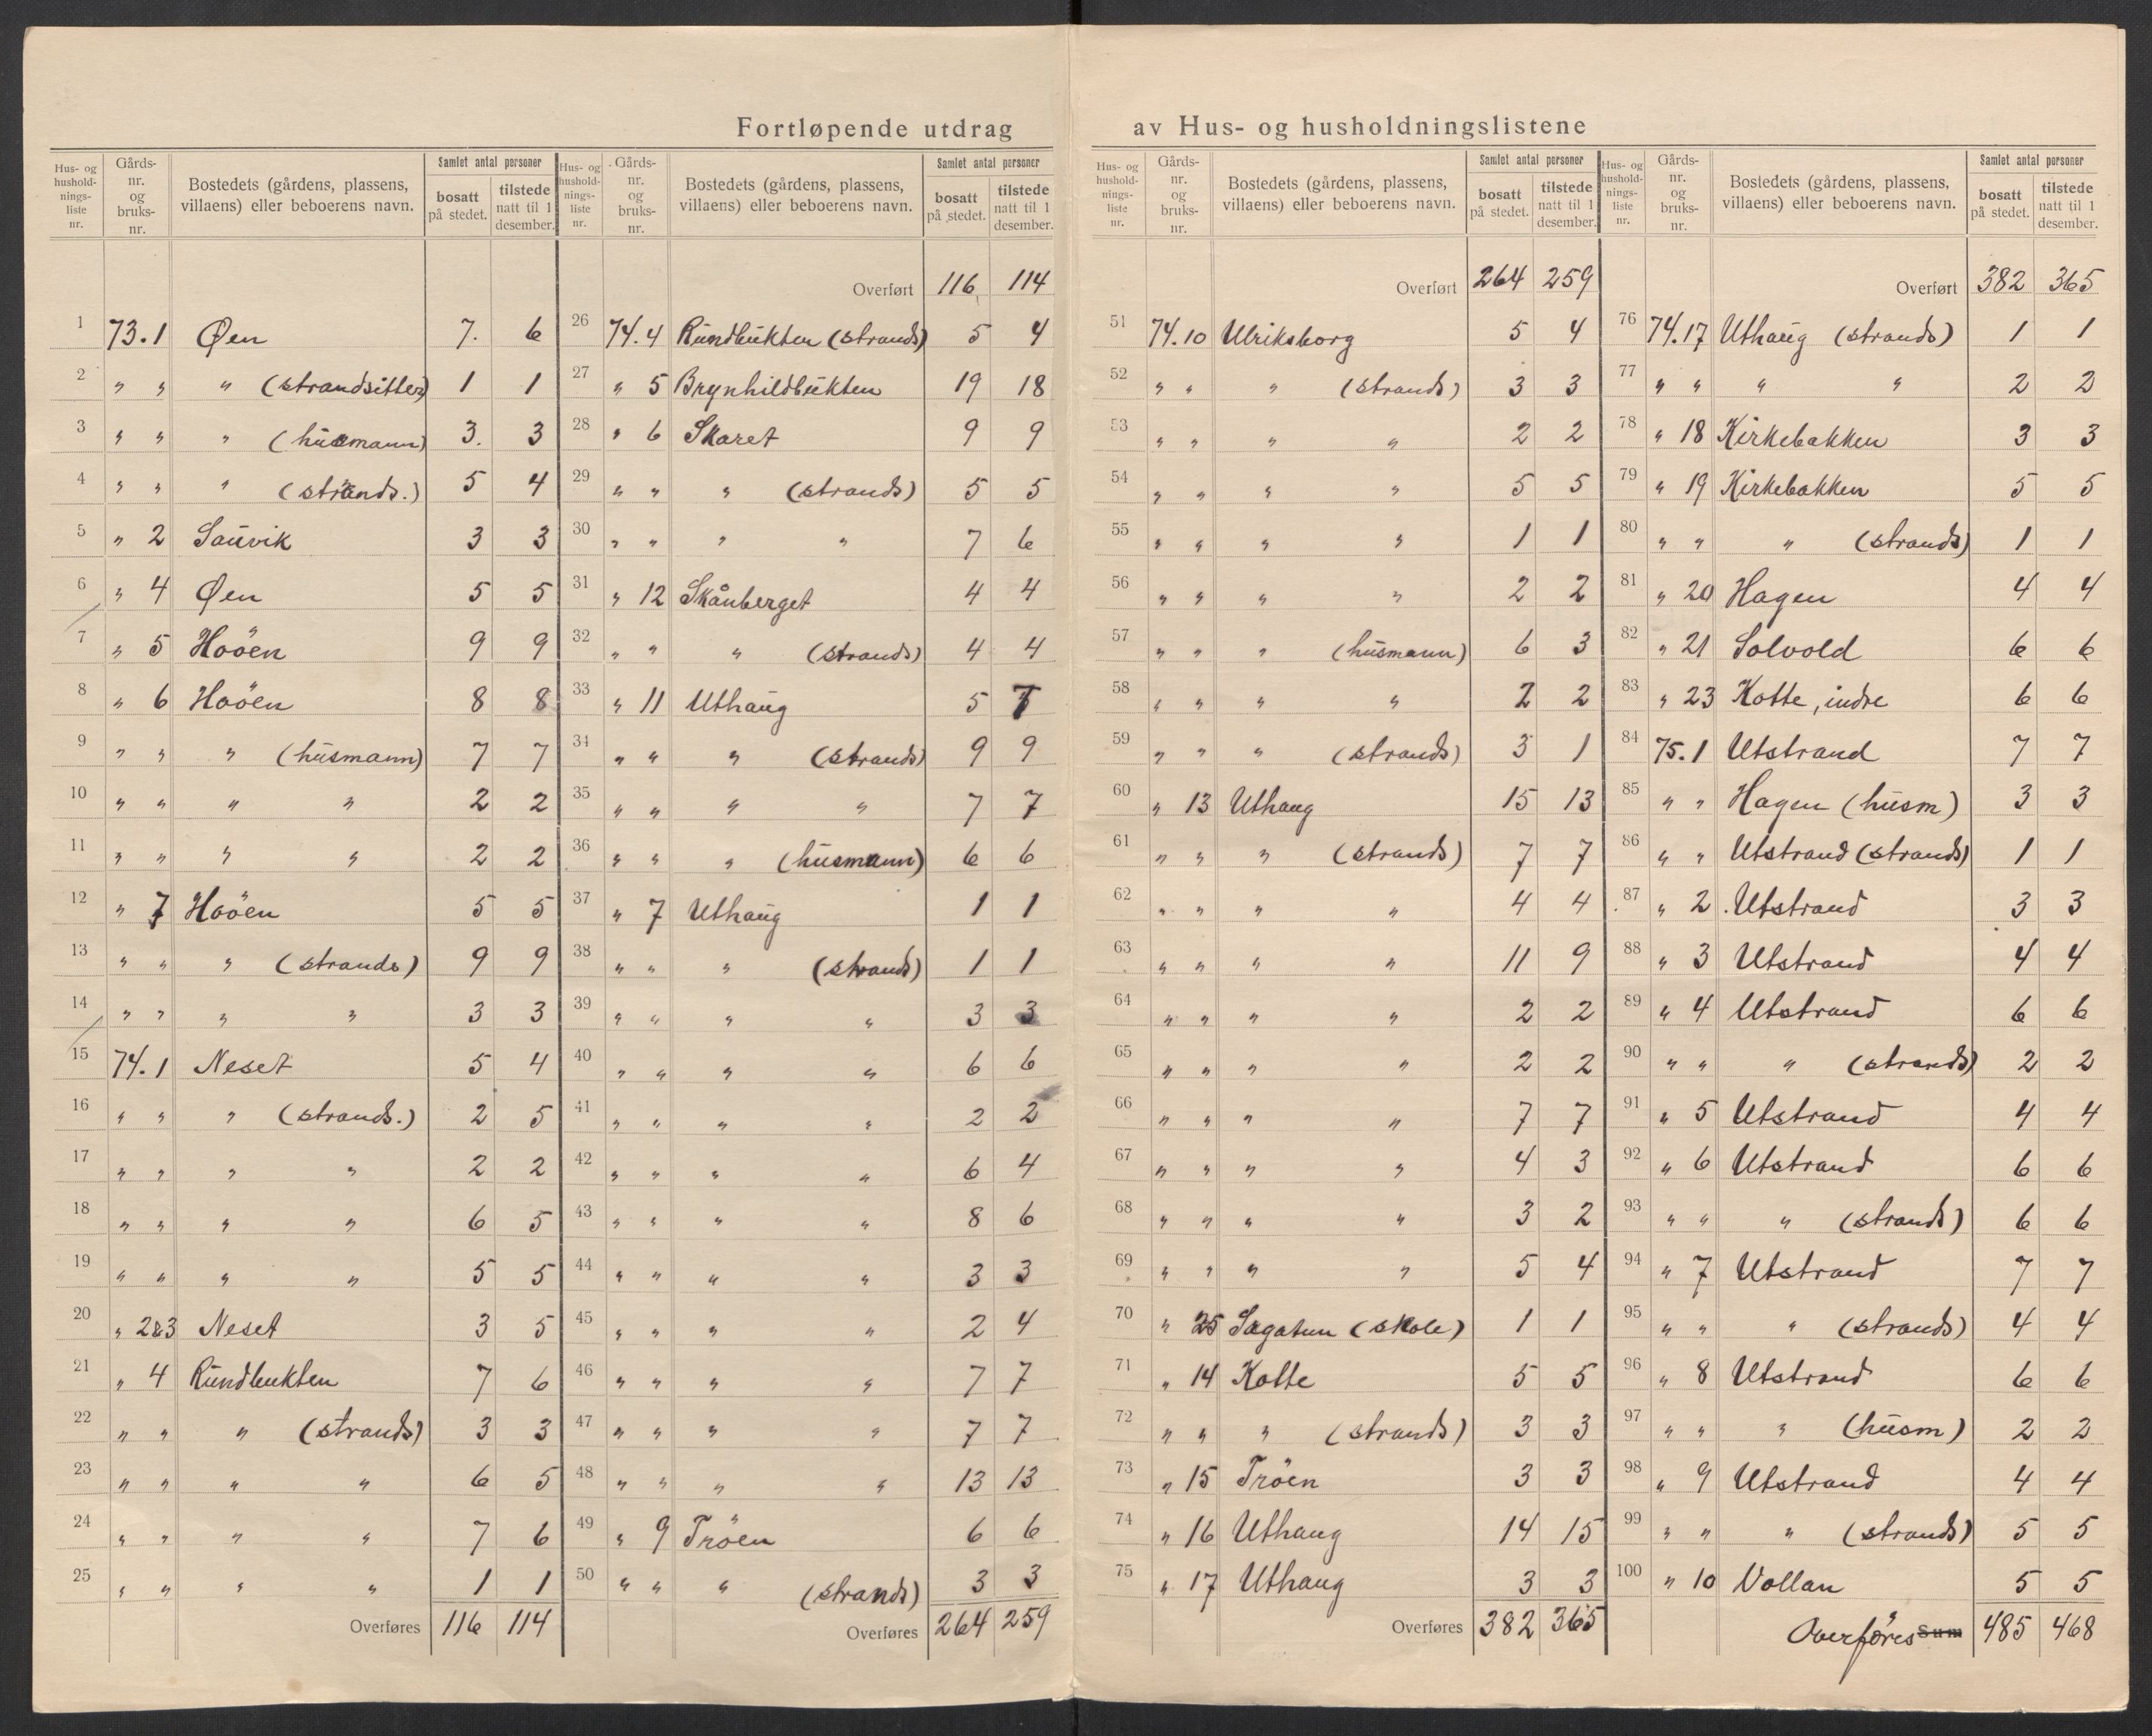 Fortløpende utdrag av Hus- og husholdningslistene
Hus- og hushold-nings-liste nr. | Gårds-nr. og bruks-nr. | Bostedets (gårdens, plassens, villaens) eller beboerens navn. | Samlet antal personer | bosatt på stedet. | tilstede natt til 1 desember.
1 73.1 Øen 7. 6
2 " " " (strandsitter) 1 1
3 " " " (husmann) 3. 3
4 " " " (strands.) 5 4
5 " 2 Sauvik 3 3
6 " 4 Øen 5 5
7 " 5 Hoöen 9 9
8 " 6 Hoöen 8 8
9 " " " (husmann) 7 7
10 " " " " 2 2
11 " " " " 2 2
12 " 7 Hoöen 5 5
13 " " " (strands) 9 9
14 " " " " 3 3
15 74.1 Neset 5 4
16 " " " (strands.) 2 5
17 " " " " 2 2
18 " " " " 6 5
19 " " " " 5 5
20 " 2&3 Neset 3 5
21 " 4 Rundbukten 7 6
22 " " " (strands) 3 3
23 " " " " 6 5
24 " " " " 7 6
25 " " " " 1 1
Overføres 116 114
Hus- og hushold-nings-liste nr. | Gårds-nr. og bruks-nr. | Bostedets (gårdens, plassens, villaens) eller beboerens navn. | Samlet antal personer | bosatt på stedet. | tilstede natt til 1 desember.
Overført 116 114
26 74.4 Rundbukten (strands) 5 4
27 " 5 Brynhildbukten 19 18
28 " 6 Skaret 9 9
29 " " " (strands) 5 5
30 " " " " 7 6
31 " 12 Skånberget 4 4
32 " " " (strands) 4 4
33 " 11 Uthaug 5 7
34 " " " (strands) 9 9
35 " " " " 7 7
36 " " " (husmann) 6 6
37 " 7 Uthaug 1 1
38 " " " (strands) 1 1
39 " " " " 3 3
40 " " " " 6 6
41 " " " " 2 2
42 " " " " 6 4
43 " " " " 8 6
44 " " " " 3 3
45 " " " " 2 4
46 " " " " 7 7
47 " " " " 7 7
48 " " " " 13 13
49 " 9 Tröen 6 6
50 " " " (strands) 3 3
Overføres 264 259
Hus- og hushold-nings-liste nr. | Gårds-nr. og bruks-nr. | Bostedets (gårdens, plassens, villaens) eller beboerens navn. | Samlet antal personer | bosatt på stedet. | tilstede natt til 1 desember.
Overført 264 259
51 74.10 Ulriksborg 5 4
52 " " " (strands) 3 3
53 " " " " 2 2
54 " " " " 5 5
55 " " " " 1 1
56 " " " " 2 2
57 " " " (husmann) 6 3
58 " " " " 2 2
59 " " " (strands) 3 1
60 " 13 Uthaug 15 13
61 " " " (strands) 7 7
62 " " " " 4 4
63 " " " " 11 9
64 " " " " 2 2
65 " " " " 2 2
66 " " " " 7 7
67 " " " " 4 3
68 " " " " 3 2
69 " " " " 5 4
70 " 25 Sagatun (skole) 1 1
71 " 14 Kotte 5 5
72 " " " (strands) 3 3
73 " 15 Tröen 3 3
74 " 16 Uthaug 14 15
75 " 17 Uthaug 3 3
Overføres 382 365
Hus- og hushold-nings-liste nr. | Gårds-nr. og bruks-nr. | Bostedets (gårdens, plassens, villaens) eller beboerens navn. | Samlet antal personer | bosatt på stedet. | tilstede natt til 1 desember.
Overført 382 365
76 74.17 Uthaug (strands) 1 1
77 " " " " 2 2
78 " 18 Kirkebakken 3 3
79 " 19 Kirkebakken 5 5
80 " " " (strands) 1 1
81 " 20 Hagen 4 4
82 " 21 Solvold 6 6
83 " 23 Kotte, indre 6 6
84 75.1 Utstrand 7 7
85 " " Hagen (husm) 3 3
86 " " Utstrand (strands) 1 1
87 " 2 Utstrand 3 3
88 " 3 Utstrand 4 4
89 " 4 Utstrand 6 6
90 " " " (strands) 2 2
91 " 5 Utstrand 4 4
92 " 6 Utstrand 6 6
93 " " " (strands) 6 6
94 " 7 Utstrand 7 7
95 " " " (strands) 4 4
96 " 8 Utstrand 6 6
97 " " " (husm) 2 2
98 " 9 Utstrand 4 4
99 " " " (strands) 5 5
100 " 10 Vollan 5 5
Overføres Sum 485 468